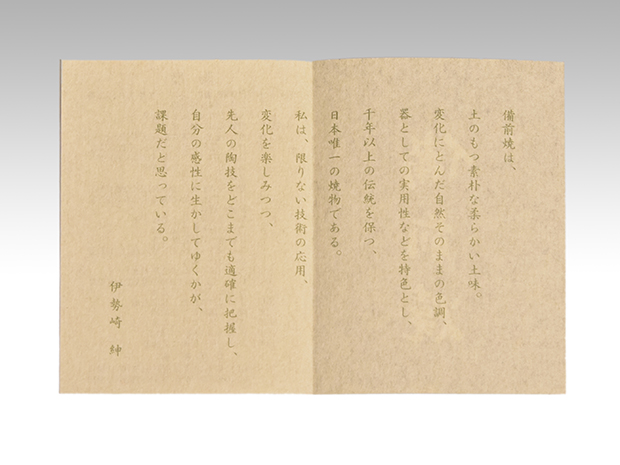 備前焼は、
土のもつ素朴な柔らかい土味。
変化にとんだ自然そのままの色調、
器としての実用性などを特色とし、
千年以上の伝統を保つ、
日本唯一の焼物である。
私は、限りない技術の応用、
変化を楽しみつつ、
先人の陶技をどこまでも適確に把握し、
自分の感性に生かしてゆくかが、
課題だと思っている。
伊勢崎 紳